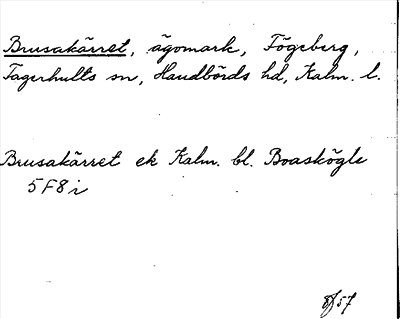 Brusakärret, ägomark, Fögeberg,
Fagerhults sn, Handbörds hd, Kalm. l.
Brusakärret ek Kalm. bl. Boaskögle
5F8i
57